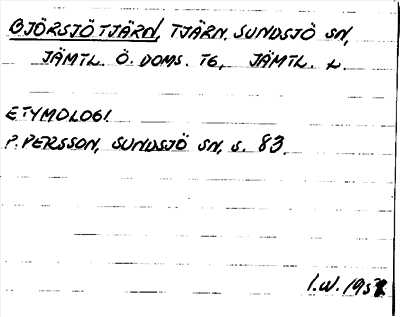 BJÖRSJÖTJÄRN, TJÄRN, SUNDSJÖ SN,
JÄMTL. Ö. DOMS. TG, JÄMTL. L.
ETYMOLOGI.
P. PERSSON, SUNDSJÖ SN, S. 83.
I.W.